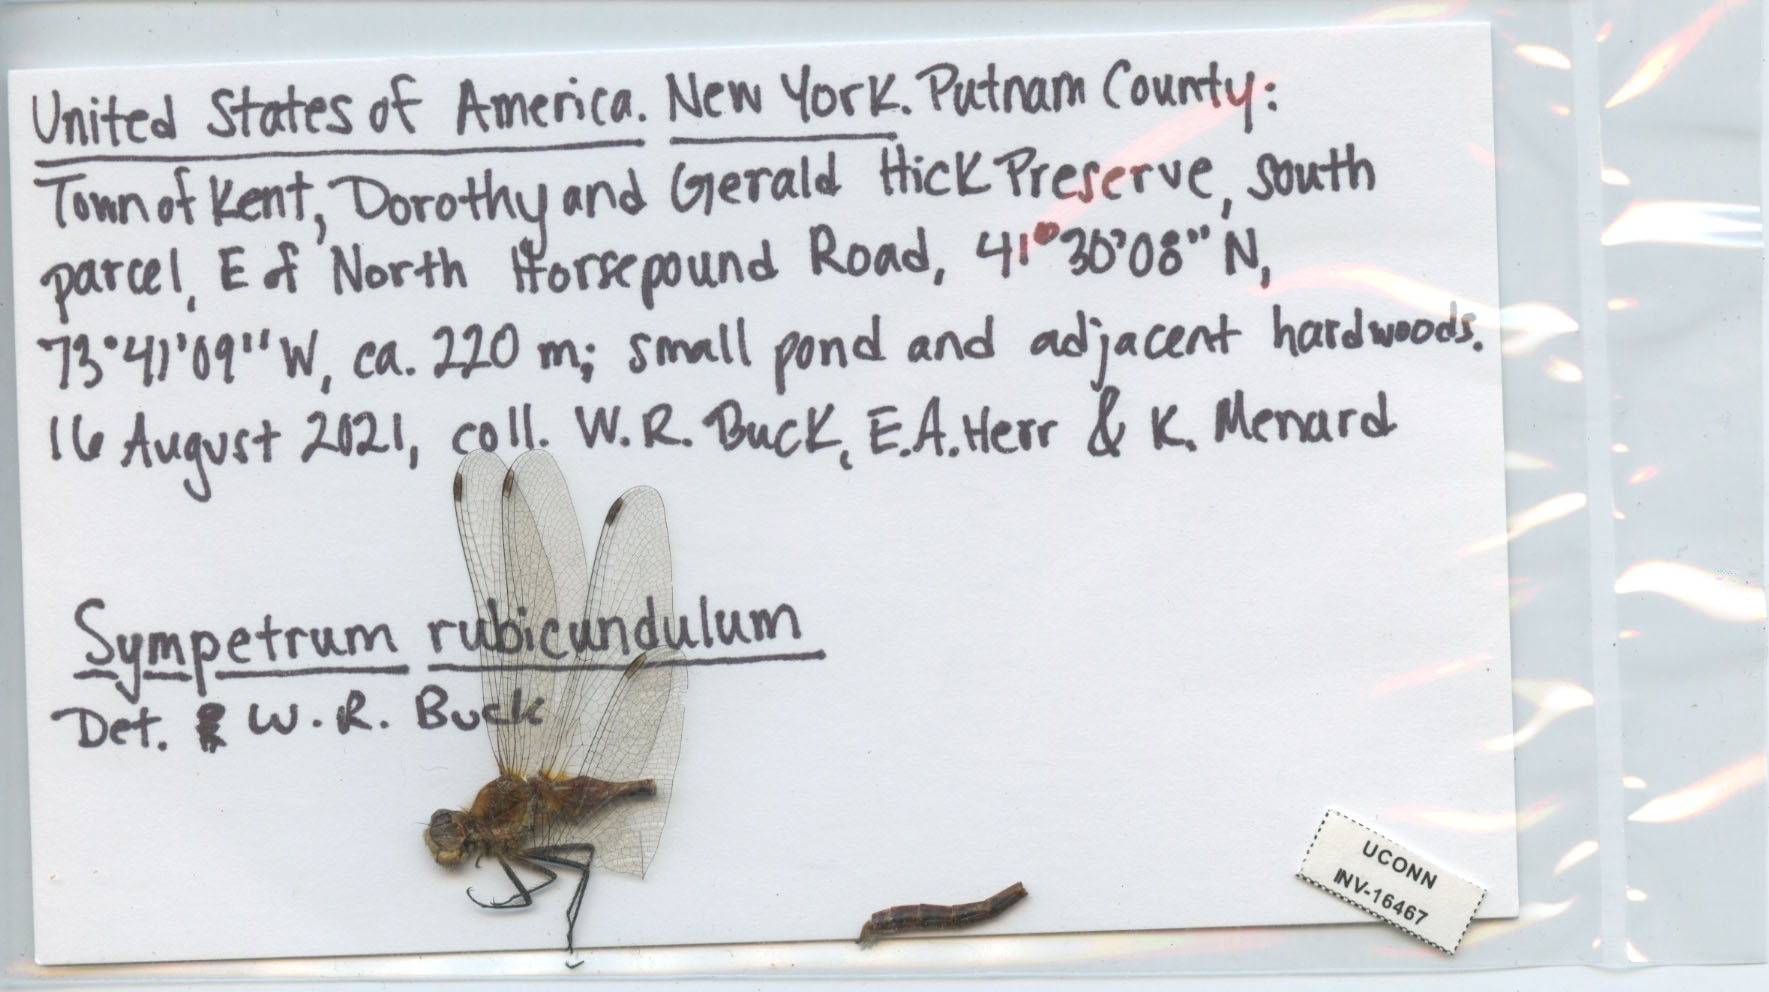 United States of America. New York. Putnam County:
Town of Kent, Dorothy and Gerald Hick Preserve, south
parcel, E of North Horsepound Road, 41°30'08" N,
73°41'09" W, ca. 220 m; small pond and adjacent hardwoods.
16 August 2021, coll. W.R. Buck, E.A. Herr & K. Menard
Sympetrum rubicundulum
Det. W. R. Buck
UCONN
INV-16467